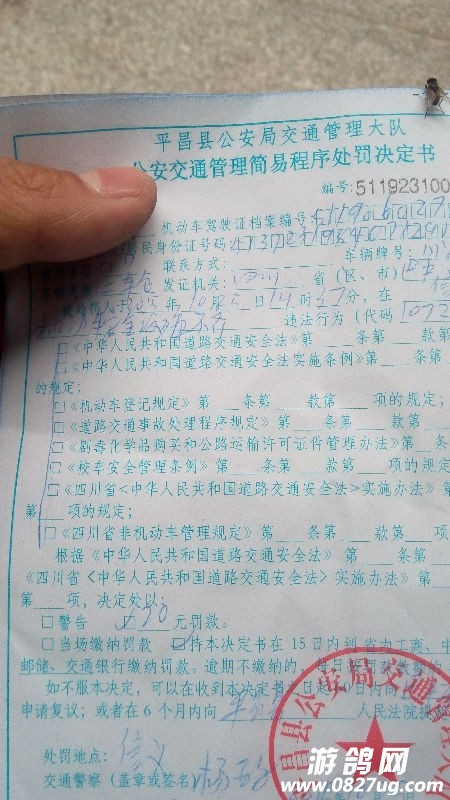 平昌县公安局交通管理大队
公安交通管理简易程序处罚决定书
编号:511923100
机动车驾驶证档案编号:
居民身份证号码
车辆牌号:川
联系方式:
发证机关: 四川 省(区、市)
年10月 日14时27分,在
违法行为(代码1072
□《中华人民共和国道路交通安全法》第 条第 款第
□《中华人民共和国道路交通安全法实施条例》第 条第
的规定;
□《机动车登记规定》第 条第 款第 项的规定;
□《道路交通事故处理程序规定》第 条第 款第
□《剧毒化学品购买和公路运输许可证件管理办法》第 条
□《校车安全管理条例》第 条第 款第 项的规定
□《四川省<中华人民共和国道路交通安全法>实施办法》第
第 项的规定;
□《四川省非机动车管理规定》第 条第 款第 项
根据《中华人民共和国道路交通安全法》第 条第
《四川省〈中华人民共和国道路交通安全法〉实施办法》第
第 项,决定处以:
□警告 元罚款。
□当场缴纳罚款 持本决定书在15日内到省内工商、中
邮储、交通银行缴纳罚款。逾期不缴纳的,每日按罚款数额的
如不服本决定,可以在收到本决定书之日起60日内向
申请复议;或者在6个月内向 人民法院提起
处罚地点: 信义
交通警察(盖章或签名) 杨
平昌县公安局交通
游鸽网
www.0827ug.com